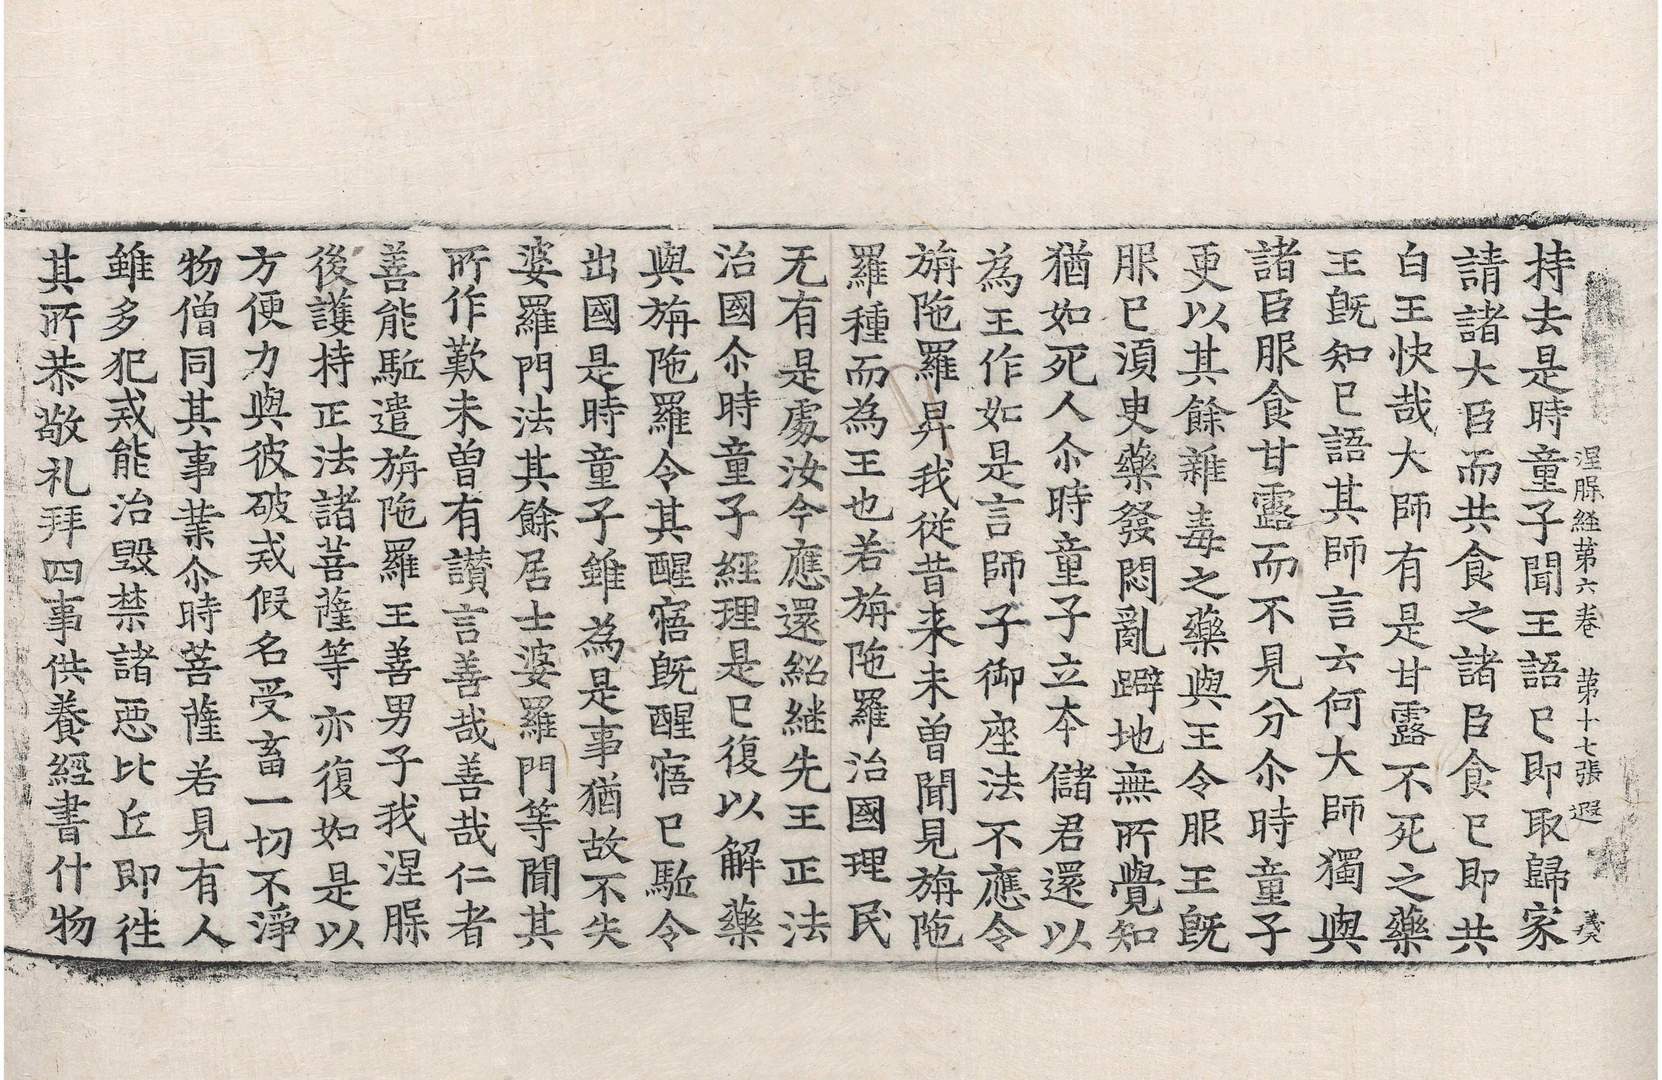 涅槃経第六卷 第十七張 遐
持去是時童子聞王語已即取歸家
請諸大臣而共食之諸臣食已即共
白王快哉大師有是甘露不死之藥
王既知已語其師言云何大師獨與
諸臣服食甘露而不見分尒時童子
更以其餘雜毒之藥與王令服王既
服已須臾藥發悶亂躃地無所覺知
猶如死人尒時童子立本儲君還以
為王作如是言師子御座法不應令
旃陁羅昇我從昔来未曽聞見旃陁
羅種而為王也若旃陁羅治國理民
无有是處汝今應還紹継先王正法
治國尒時童子經理是已復以解藥
與旃陁羅令其醒寤既醒寤已駈令
出國是時童子雖為是事猶故不失
婆羅門法其餘居士婆羅門等聞其
所作歎未曽有讃言善哉善哉仁者
善能駈遣旃陁羅王善男子我涅槃
後護持正法諸菩薩等亦復如是以
方便力與彼破戒假名受畜一切不淨
物僧同其事業尒時菩薩若見有人
雖多犯戒能治毀禁諸惡比丘即往
其所恭敬礼拜四事供養經書什物